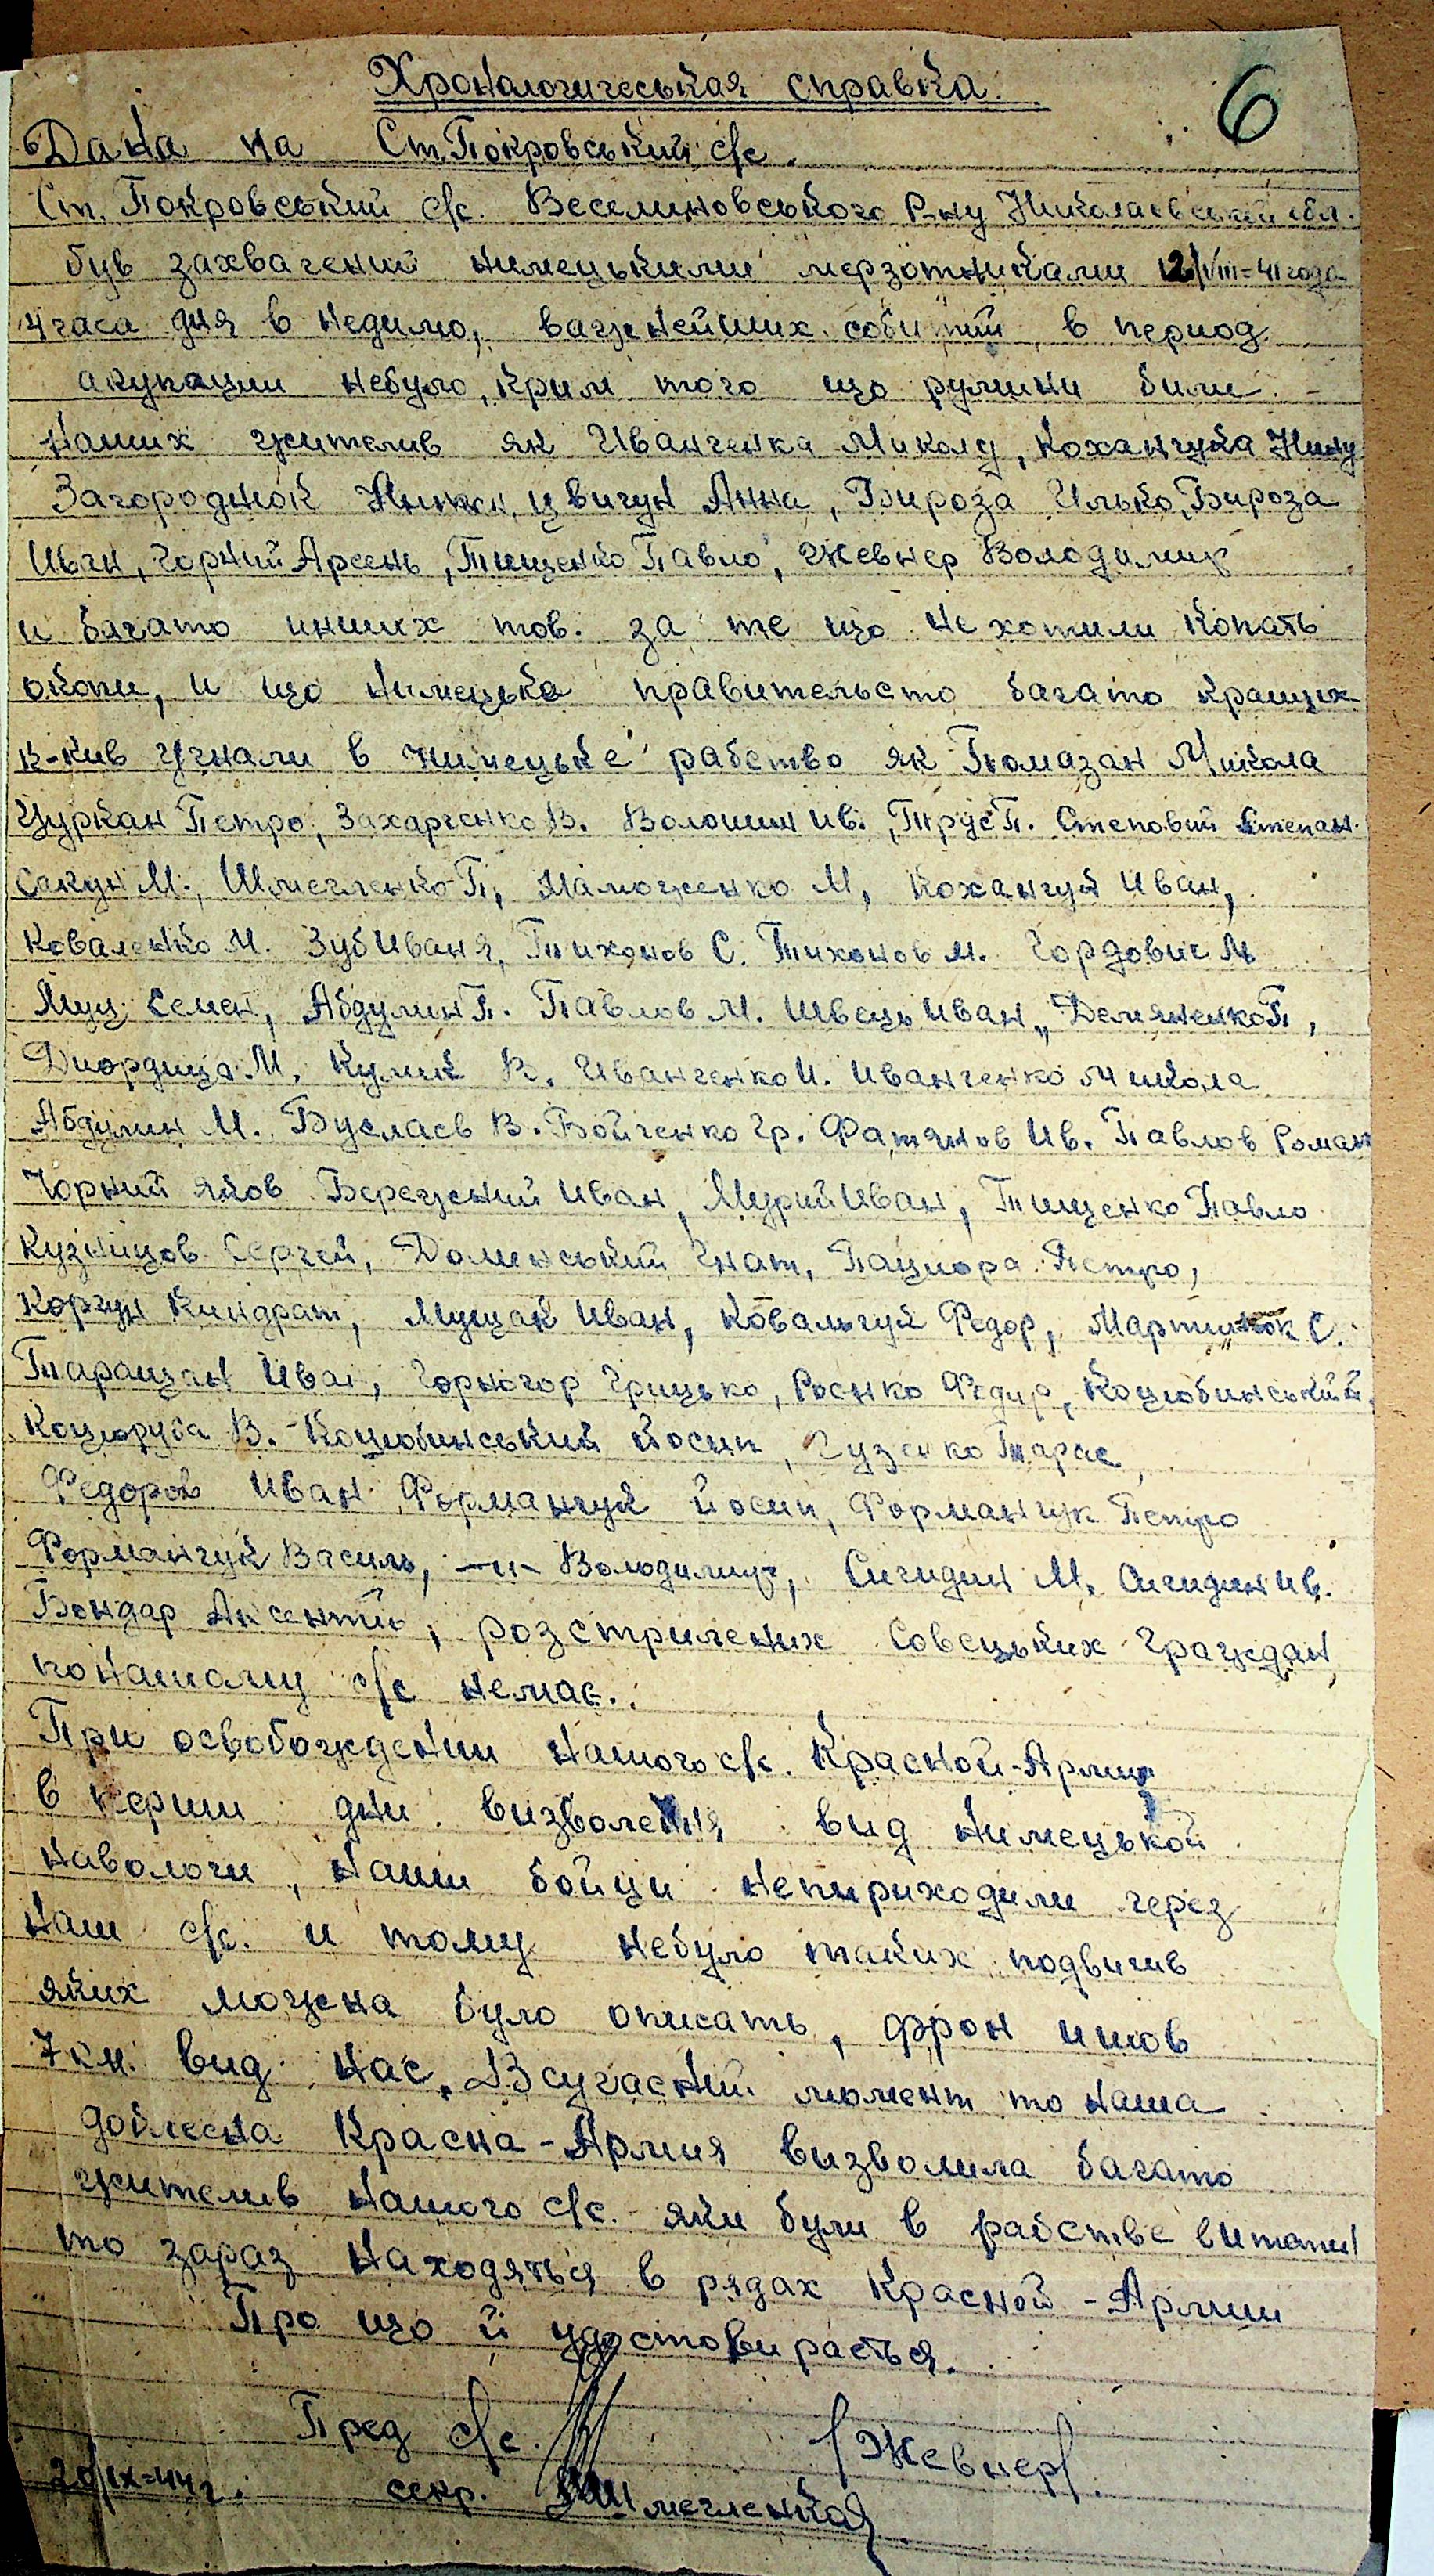 Хронологическая справка.
6
Дана на Ст. Покровський с/с.
Ст. Покровський с/с. Веселиновського Р-ну Николаевський обл.
був захвачений нимецькими мерзотниками 12/VIII=41 года
4 часа дня в недилю, важнейших событий в период
акупации небуло, крим того що румини били
наших жителив як Иванченка Миколу, Коханчука Нину
Загороднюк Цвигун Анна, Бироза Илько, Бироза
Иван, Чорний Арсень, Тищенко Павло, Жевнер Володимир
и багато инших тов. за те що не хотили копать
окопи, и що нимецька правительсто багато кращих
к-кив угнали в нимецьке рабство як Помазан Микола
Цуркан Петро, Захарченко В. Волошин Ив., Трус П. Степовий Степан.
Сакун М., Шмегленко П, Маможенко М, Коханчук Иван,
Коваленко М. Зуб Иван Я, Тихонов С. Тихонов М. Гордович М
Муц Семен, Абдулин П. Павлов М. Швець Иван, Демяненко П,
Диордица М, Кулик В, Иванченко И. Иванченко Микола
Абдулин М. Буслаев В. Бойченко Гр. Фатянов Ив. Павлов Роман
Чорний Яков Бережний Иван, Мурий Иван, Тищенко Павло
Кузницов Сергей, Доменський Гнат, Пациора Петро,
Коргун Киндрат, Мущак Иван, Ковальчук Федор, Мартинюк С.
Таращан Иван, Чорногор Грицько, Роенко Федир, Коцюбинський Й.
Коцюруба В. Коцюбинський Йосип, Гузенко Тарас,
Федоров Иван Форманчук Йосип, Форманчук Петро
Форманчук Василь, —"— Володимир, Сигидин М, Сигидин Ив.
Бондар Аксентий, розстрилених Совецьких граждан,
по нашому с/с немае.
При освобождении нашого с/с. Красной-Армии
в перши дни визволення вид нимецькой
наволочи, наши бойци неприходили через
наш с/с. и тому небуло таких подвигив
яких можна було описать, фрон ишов
7 км. вид нас. Всучасний момент то наша
доблесна Красна-Армия визволила багато
жителив нашого с/с. яки були в рабстве
то зараз находяться в рядах Красной-Армии
Про що й удостовираеться.
Пред с/с. /Жевнер/.
20/IX=44 г. секр. Шмегленкоя